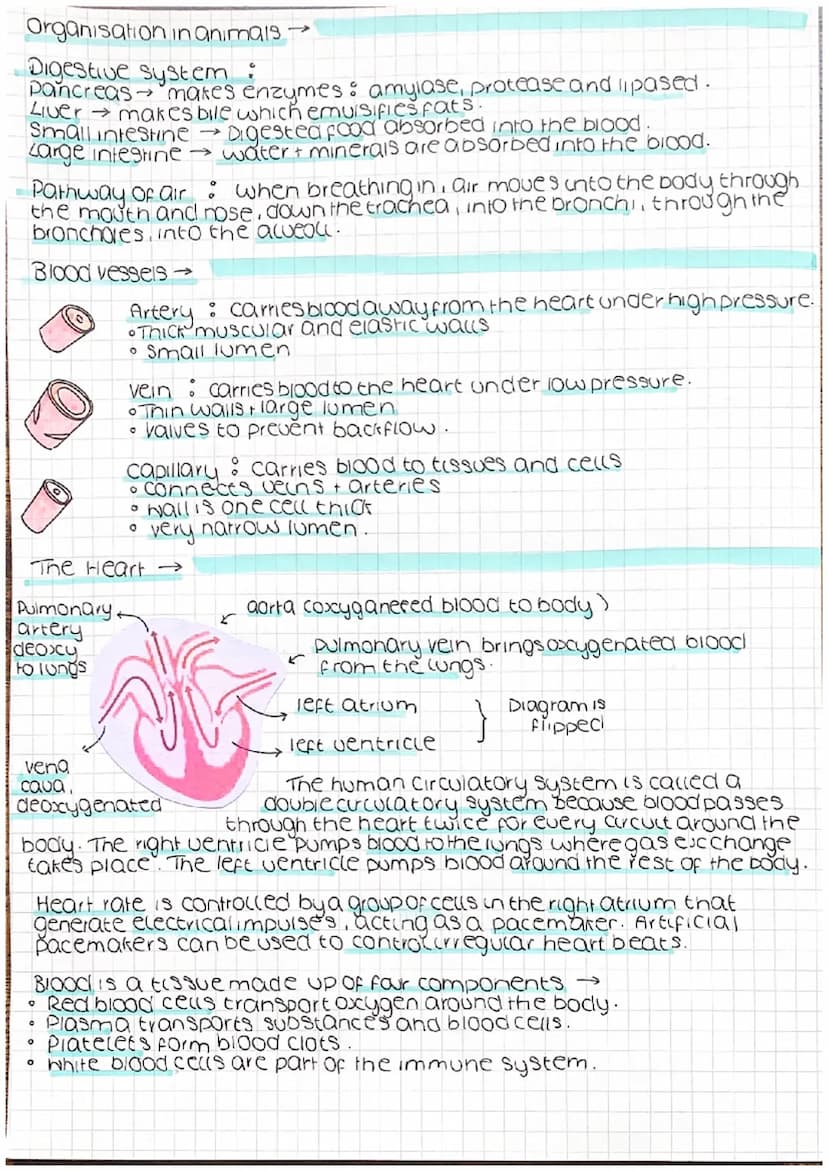 Organisation in animals →
Digestive system :
Pancreas → makes enzymes : amylase, protease and lipased.
Liver → makes bile which emulsifies fats.
Small intestine → Digested food absorbed into the blood.
Large intestine → water + minerals are absorbed into the blood.
Pathway of air : when breathing in, air moves into the body through
the mouth and nose, down the trachea, into the bronchi, through the
bronchioles, into the alveoli.
Blood vessels →
Artery : carries blood away from the heart under high pressure.
• Thick muscular and elastic walls
• small lumen
vein : carries blood to the heart under low pressure.
• Thin walls + large lumen
• valves to prevent backflow.
capillary : carries blood to tissues and cells
• connects veins + arteries
• wall is one cell thick
• very narrow lumen.
The Heart →
Pulmonary
artery
deoxy
to lungs
aorta (oxyganeeed blood to body)
Pulmonary vein brings oxygenated blood
from the lungs.
left atrium
left ventricle
} Diagram is
flipped
vena
cava,
deoxygenated
The human circulatory system is called a
double circulatory system because blood passes
through the heart twice for every circuit around the
body. The right ventricle pumps blood to the lungs where gas exchange
takes place. The left ventricle pumps blood around the rest of the body.
Heart rate is controlled by a group of cells in the right atrium that
generate electrical impulses, acting as a pacemaker. Artificial
pacemakers can be used to control irregular heart beats.
Blood is a tissue made up of four components →
• Red blood cells transport oxygen around the body.
• Plasma transports substances and blood cells.
• Platelets form blood clots.
• White blood cells are part of the immune system.